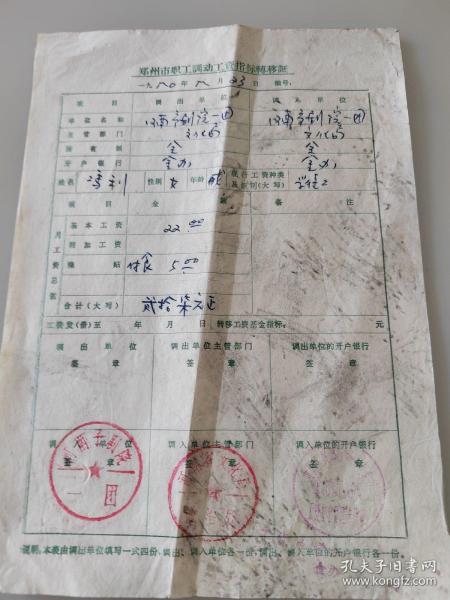 郑州市职工调动工资指标转移証
一九八〇年八月23日 编号：
项目 调出单位 调入单位
单位名称 河南豫剧院一团 河南豫剧院一团
主管部门 文化局 文化局
所有制 全 全
开户银行 金办 金办
姓名 冯利 性别 女 年龄 成 现行工资种类及级别(大写) 学徒2
项目 金额 备注
月工资总额
基本工资 22.00
附加工资
津贴 付食 5.00
合计(大写) 贰拾柒元正
工资发(借)至 年 月 日 转移工资基金指标。 元
调出单位签章 调出单位主管部门签章 调出单位的开户银行签章
调入单位签章 调入单位主管部门签章 调入单位的开户银行签章
一团
说明：本表由调出单位填写一式四份，调出、调入单位各一份，调出、调入单位的开户银行各一份。
孔夫子旧书网